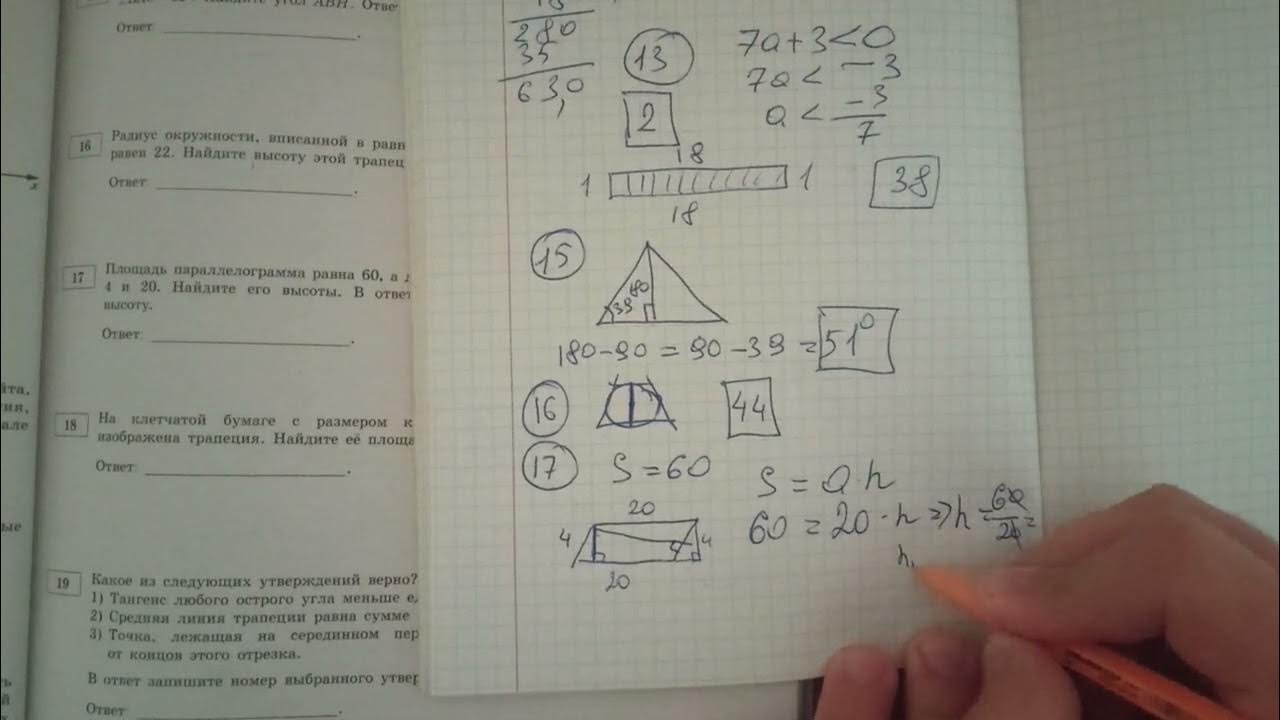 Найдите угол ABH. Ответ
Ответ
16
Радиус окружности, вписанной в
равен 22. Найдите высоту этой
Ответ
17
Площадь параллелограмма равна 60, а
4 и 20. Найдите его высоты. В
высоту.
Ответ
18
На клетчатой бумаге с размером
изображена трапеция. Найдите её
Ответ
19
Какое из следующих утверждений верно?
1) Тангенс любого острого угла меньше
2) Средняя линия трапеции равна сумме
3) Точка, лежащая на серединном
от концов этого отрезка.
В ответ запишите номер выбранного
Ответ
x
280
35
63,0
13
7a+3<0
7a < -3
a < -3/7
2
18
1 1
18
38
15
39
180-90 = 90-39 = 51°
16
44
17
S=60
S = a·h
60 = 20·h => h = 60/20 =
h
20
4 4
20